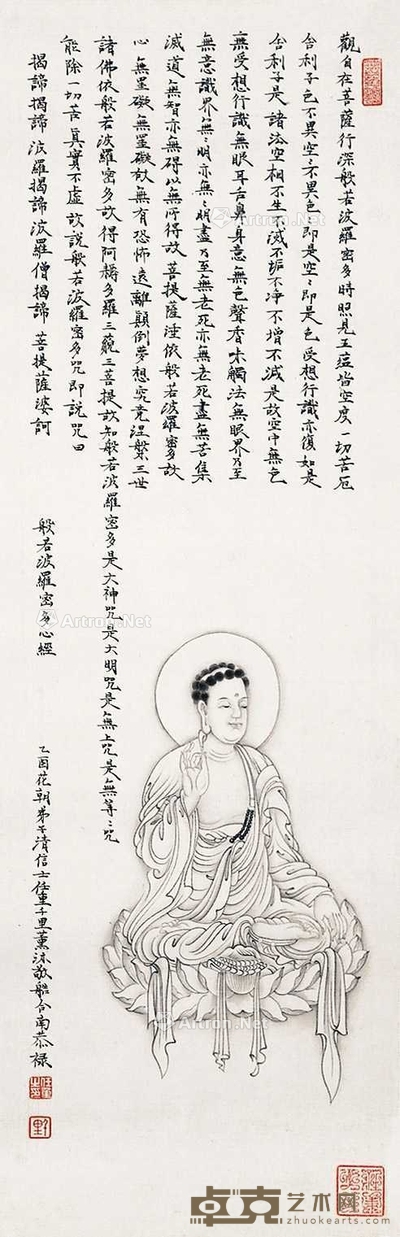 觀自在菩薩行深般若波羅密多時照見五蘊皆空度一切苦厄
舍利子色不異空空不異色色即是空空即是色受想行識亦復如是
舍利子是諸法空相不生不滅不垢不净不增不減是故空中無色
無受想行識無眼耳舌鼻身意無色聲香味觸法無眼界乃至
無意識界無無明亦無無明盡乃至無老死亦無老死盡無苦集
滅道無智亦無碍以無所得故菩提薩埵依般若波羅密多故
心無罣礙無罣礙故無有恐怖遠離顛倒夢想究竟涅槃三世
諸佛依般若波羅密多故得阿耨多羅三藐三菩提故知般若波羅密多是大神咒是大明咒是無上咒是無等等咒
能除一切苦真實不虛故說般若波羅密多咒即説咒曰
揭諦揭諦 波羅揭諦 波羅僧揭諦 菩提薩婆訶
般若波羅密多心經
乙酉花朝弟子清信士任重千里薰沐敬繪合南恭祿
任重之印
千里
Artron.Net
Artron.Net
Artron.Net
Artron.Net
卓克艺术网
www.zhuokearts.com